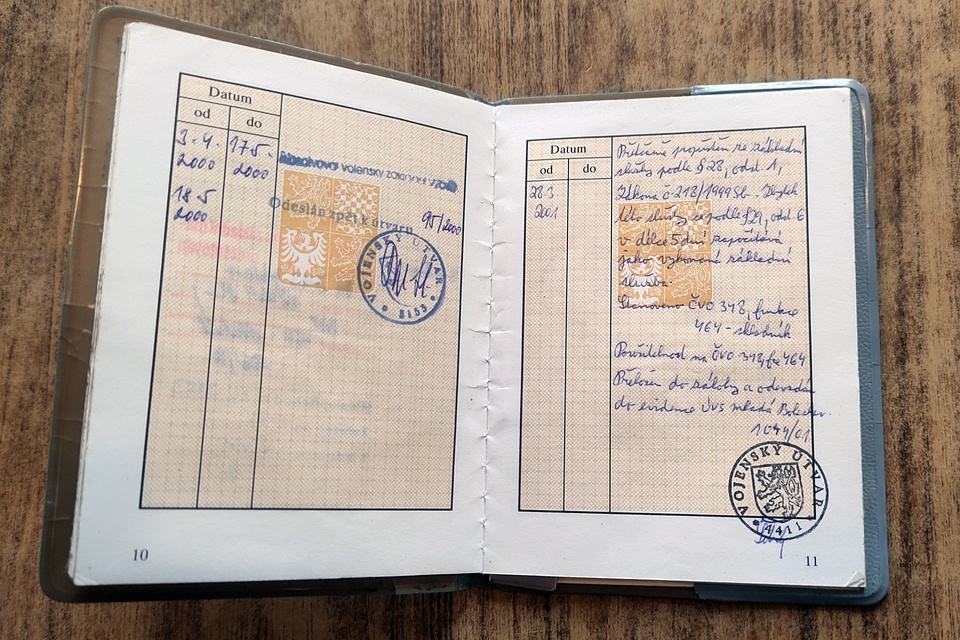 Datum
od do
3.4. 2000 17.5. 2000
Absolvoval vojenský
18.5 2000
Odeslán zpět k útvaru 95/2000
VOJENSKÝ ÚTVAR
8153
10
Datum
od do
28.3. 2001
propuštěn ze základní
služby podle § 28, odst. 1,
Zákona č. 218/1999 Sb. Zbytek
této služby se podle § 29, odst. 6
v délce 5 dní započítává
jako vykonaná základní
služba.
Stanoveno ČVO 318, funkce
464 - skladník
na ČVO 318, fce 464
Přeložen do zálohy a odevzdán
do evidence ÚVS Mladá Boleslav.
1044/01
VOJENSKÝ ÚTVAR
4411
11